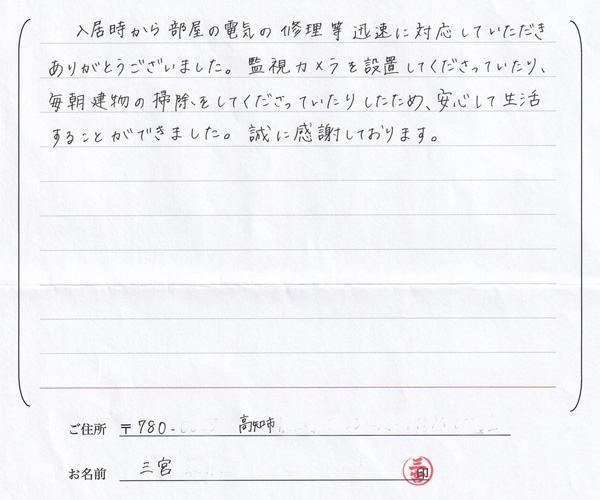 入居時から部屋の電気の修理等迅速に対応していただき
ありがとうございました。監視カメラを設置してくださっていたり、
毎朝建物の掃除をしてくださっていたりしたため、安心して生活
することができました。誠に感謝しております。
ご住所 〒780- 高知市
お名前 三宮 印